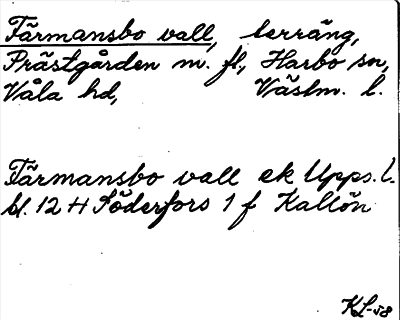 Färmansbo vall, terräng,
Prästgården m. fl., Harbo sn,
Våla hd, Västm. l.
Färmansbo vall ek Upps. l.
bl. 12 H Söderfors 1 f Kallön
KL-58